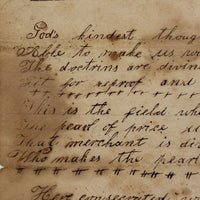 Gods kindest though
Able to make us wi
The doctrins are devin
Fit for reproof and
This is the field whe
The pearl of price is
That merchant is di
Who makes the pearl
Here consecrated wa